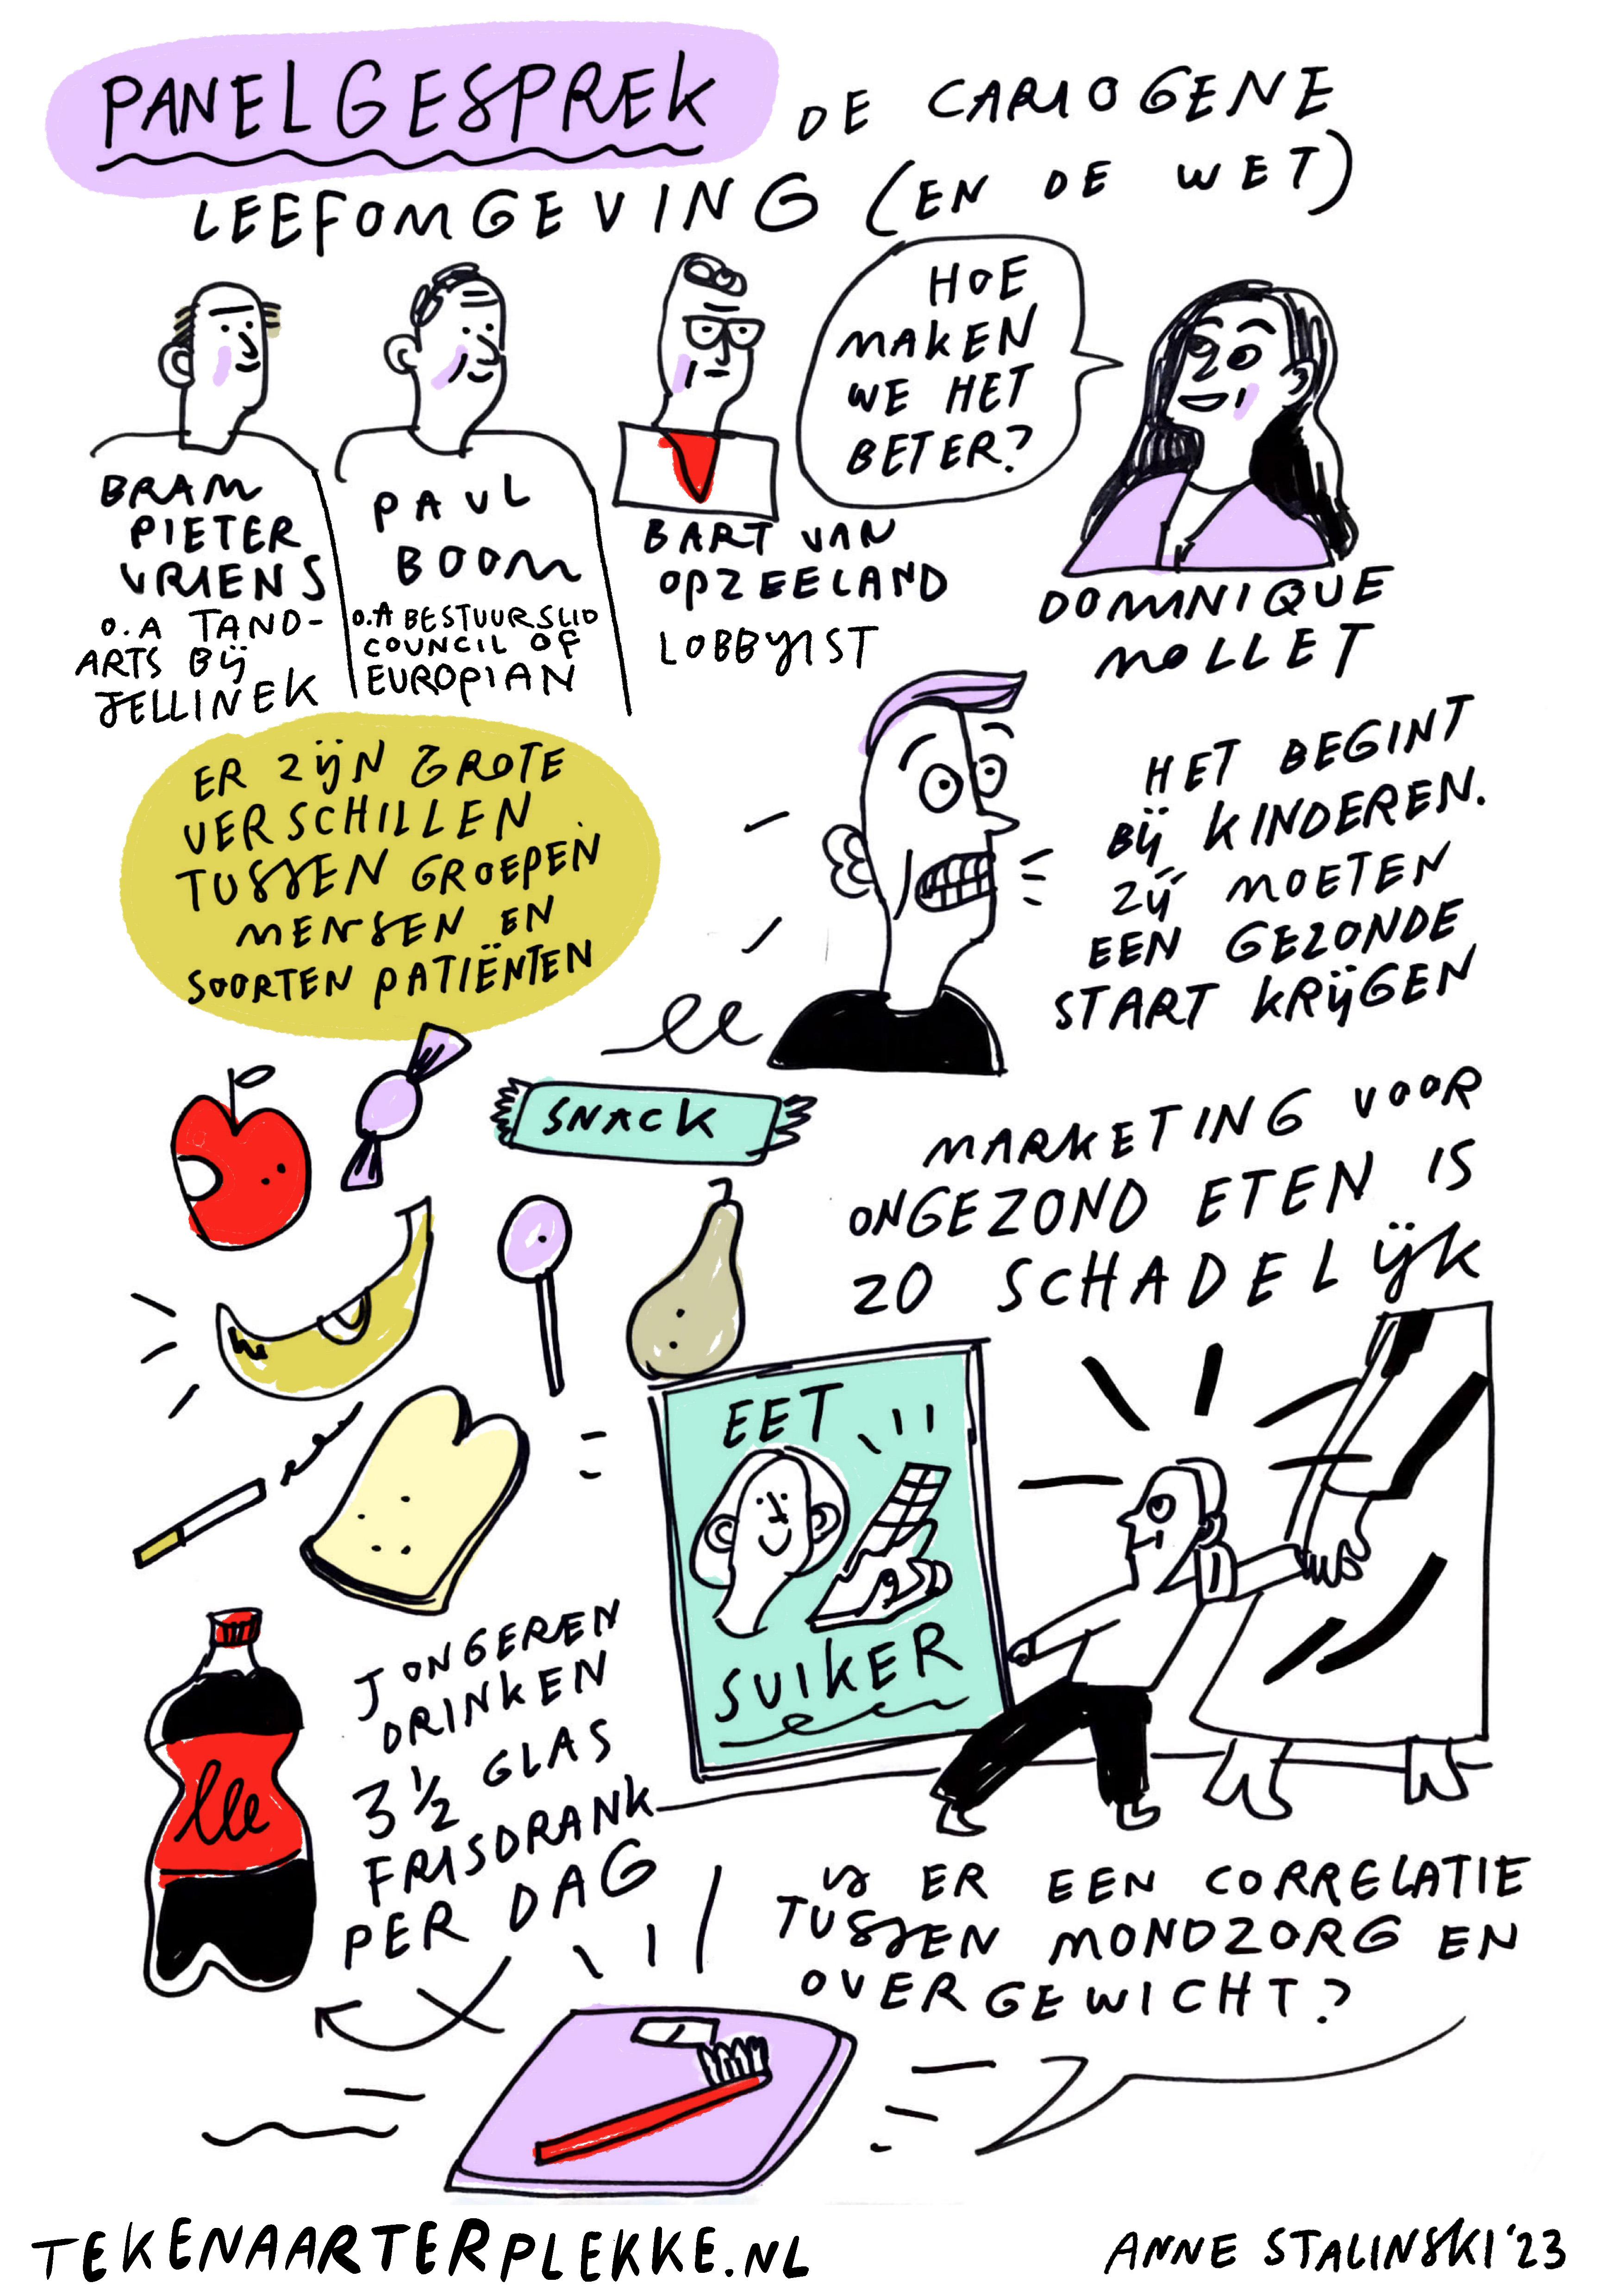 PANELGESPREK DE CARIOGENE
LEEFOMGEVING (EN DE WET)
HOE
MAKEN
WE HET
BETER?
BRAM
PIETER
VRIENS
O.A TAND-
ARTS BIJ
JELLINEK
PAUL
BOOM
O.A BESTUURSLID
COUNCIL OF
EUROPIAN
BART VAN
OPZEELAND
LOBBYIST
DOMINIQUE
MOLLET
ER ZIJN GROTE
VERSCHILLEN
TUSSEN GROEPEN
MENSEN EN
SOORTEN PATIËNTEN
HET BEGINT
BIJ KINDEREN.
ZIJ MOETEN
EEN GEZONDE
START KRIJGEN
SNACK
MARKETING VOOR
ONGEZOND ETEN IS
ZO SCHADELIJK
EET
SUIKER
JONGEREN
DRINKEN
3 1/2 GLAS
FRISDRANK
PER DAG
IS ER EEN CORRELATIE
TUSSEN MONDZORG EN
OVERGEWICHT?
TEKENAARTERPLEKKE.NL
ANNE STALINSKI '23